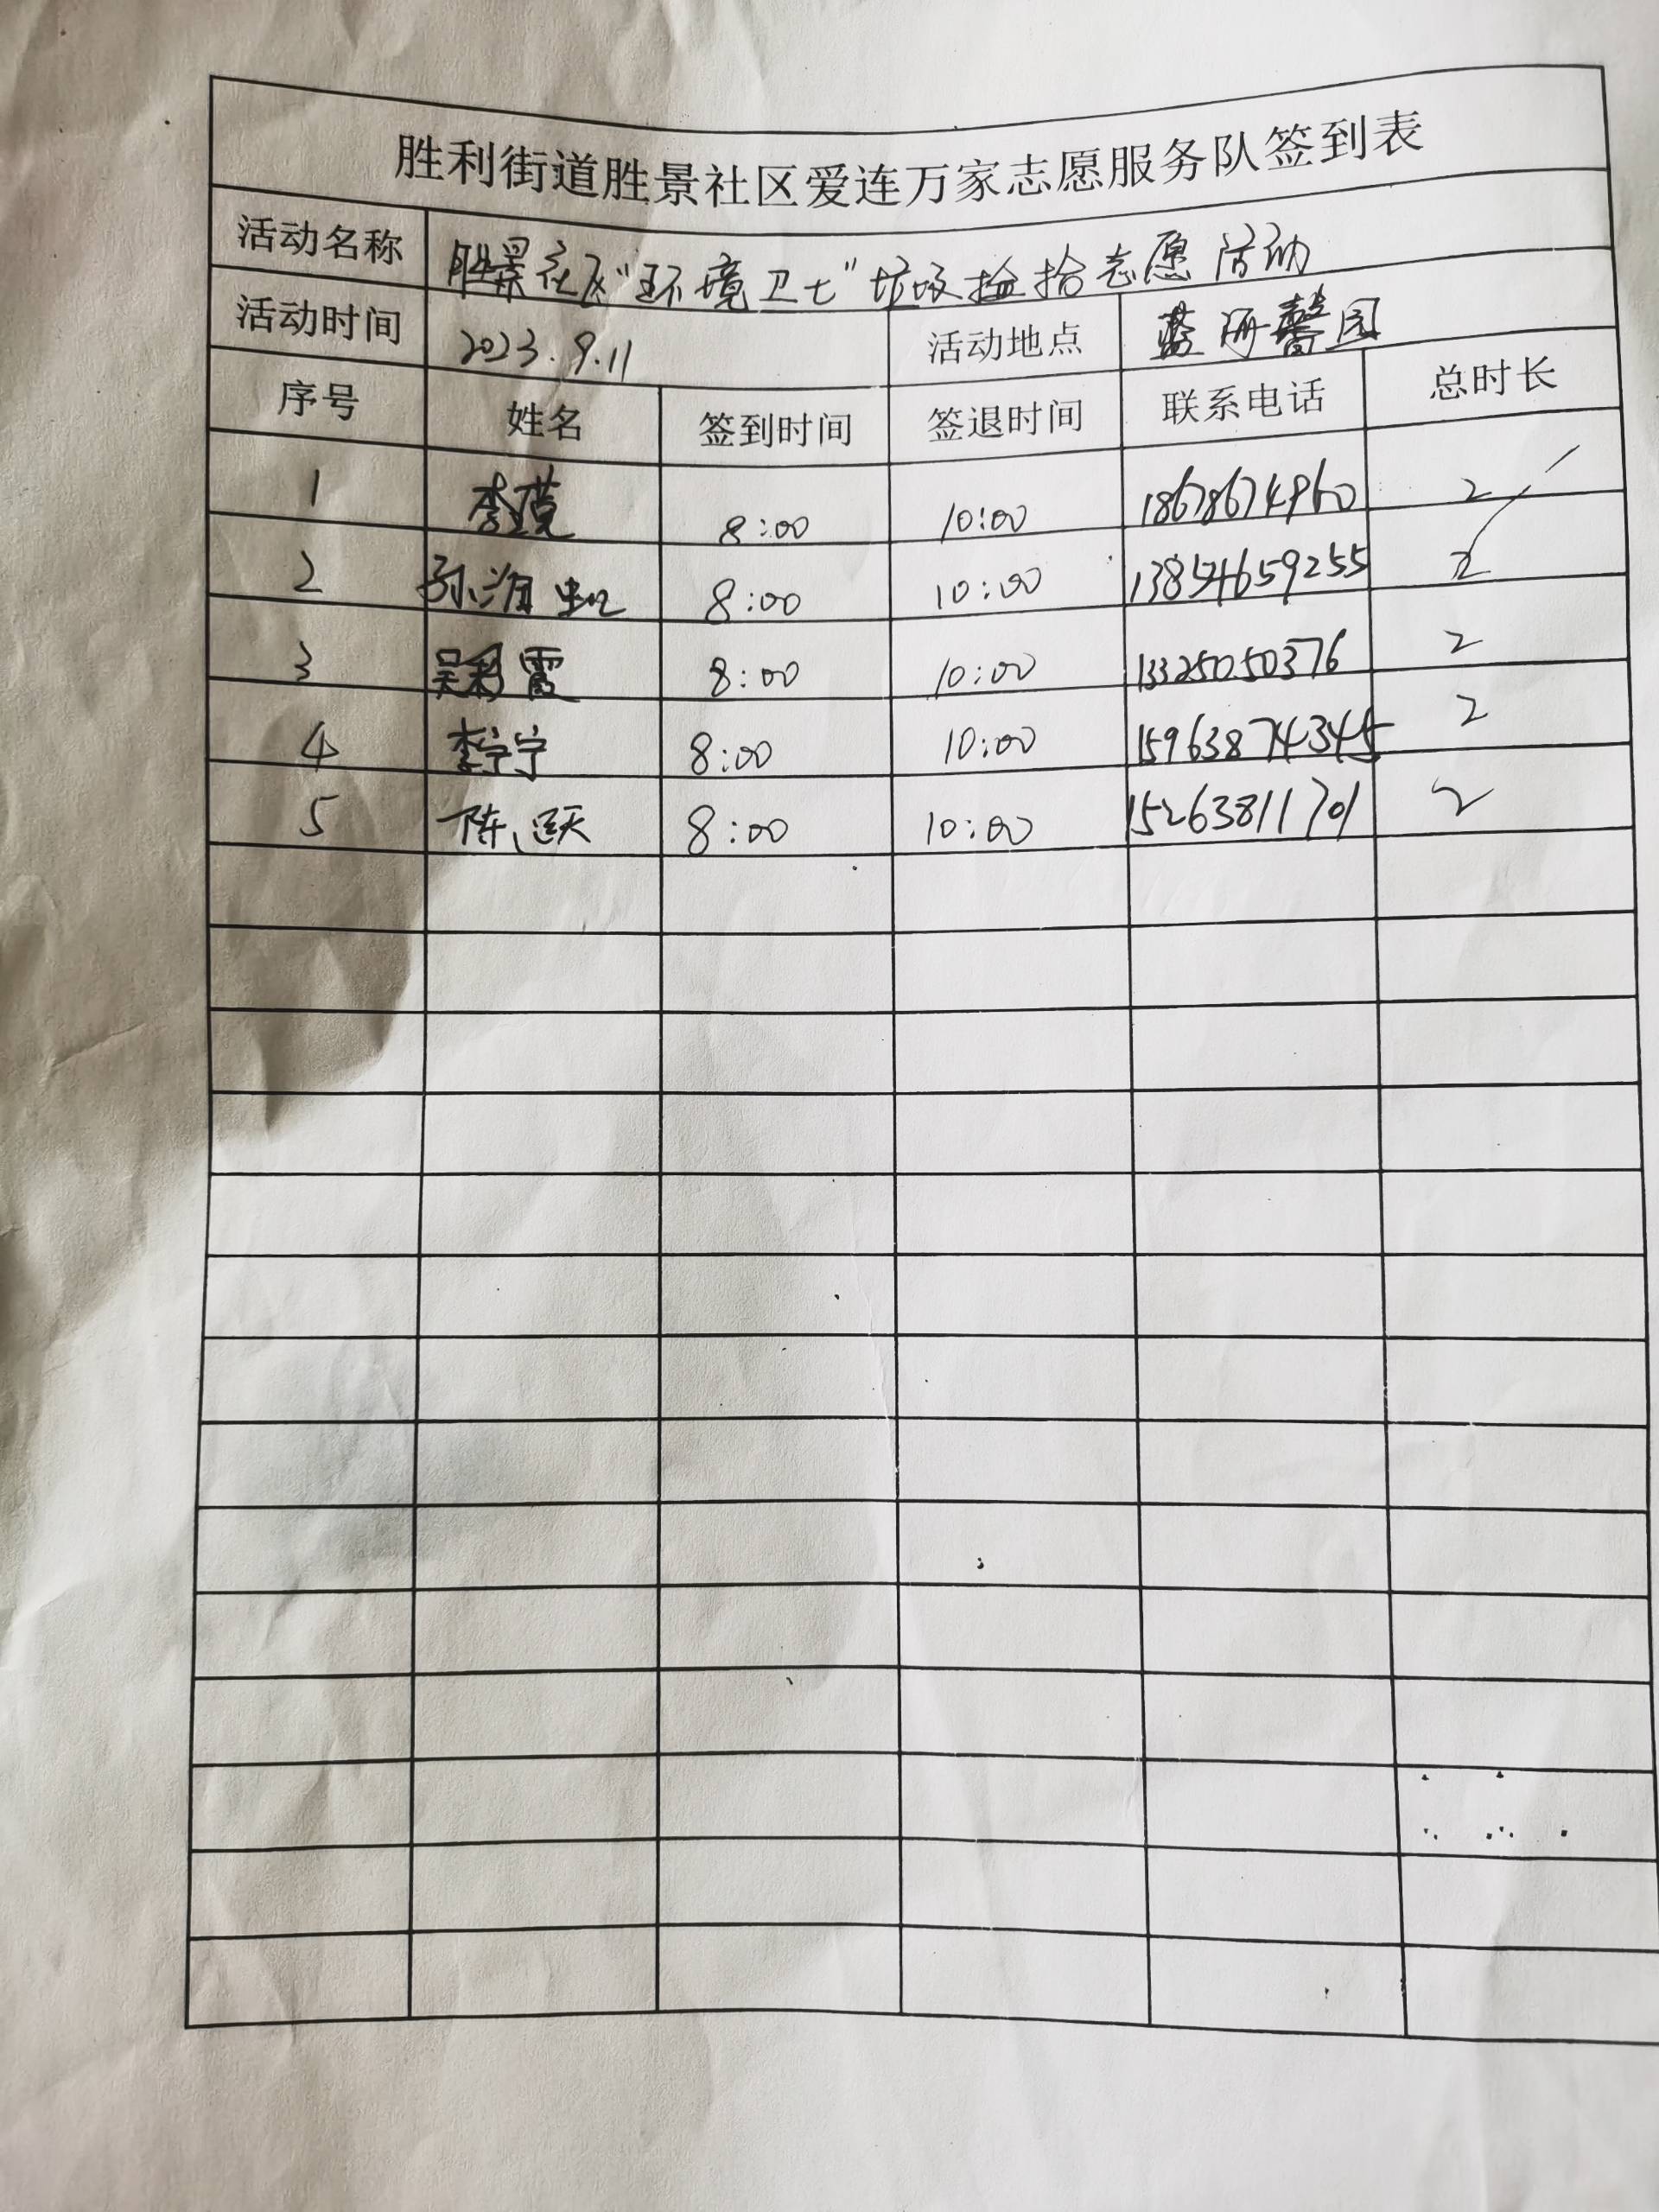 胜利街道胜景社区爱连万家志愿服务队签到表
活动名称 胜景社区“环境卫士”垃圾捡拾志愿活动
活动时间 2023.9.11 活动地点 馨园
序号 姓名 签到时间 签退时间 联系电话 总时长
1 李 8:00 10:00 18678674960 2
2 孙 8:00 10:00 13854659255 2
3 吴彩霞 8:00 10:00 13325050376 2
4 李宁宁 8:00 10:00 15963874345 2
5 陈跃 8:00 10:00 15263811701 2